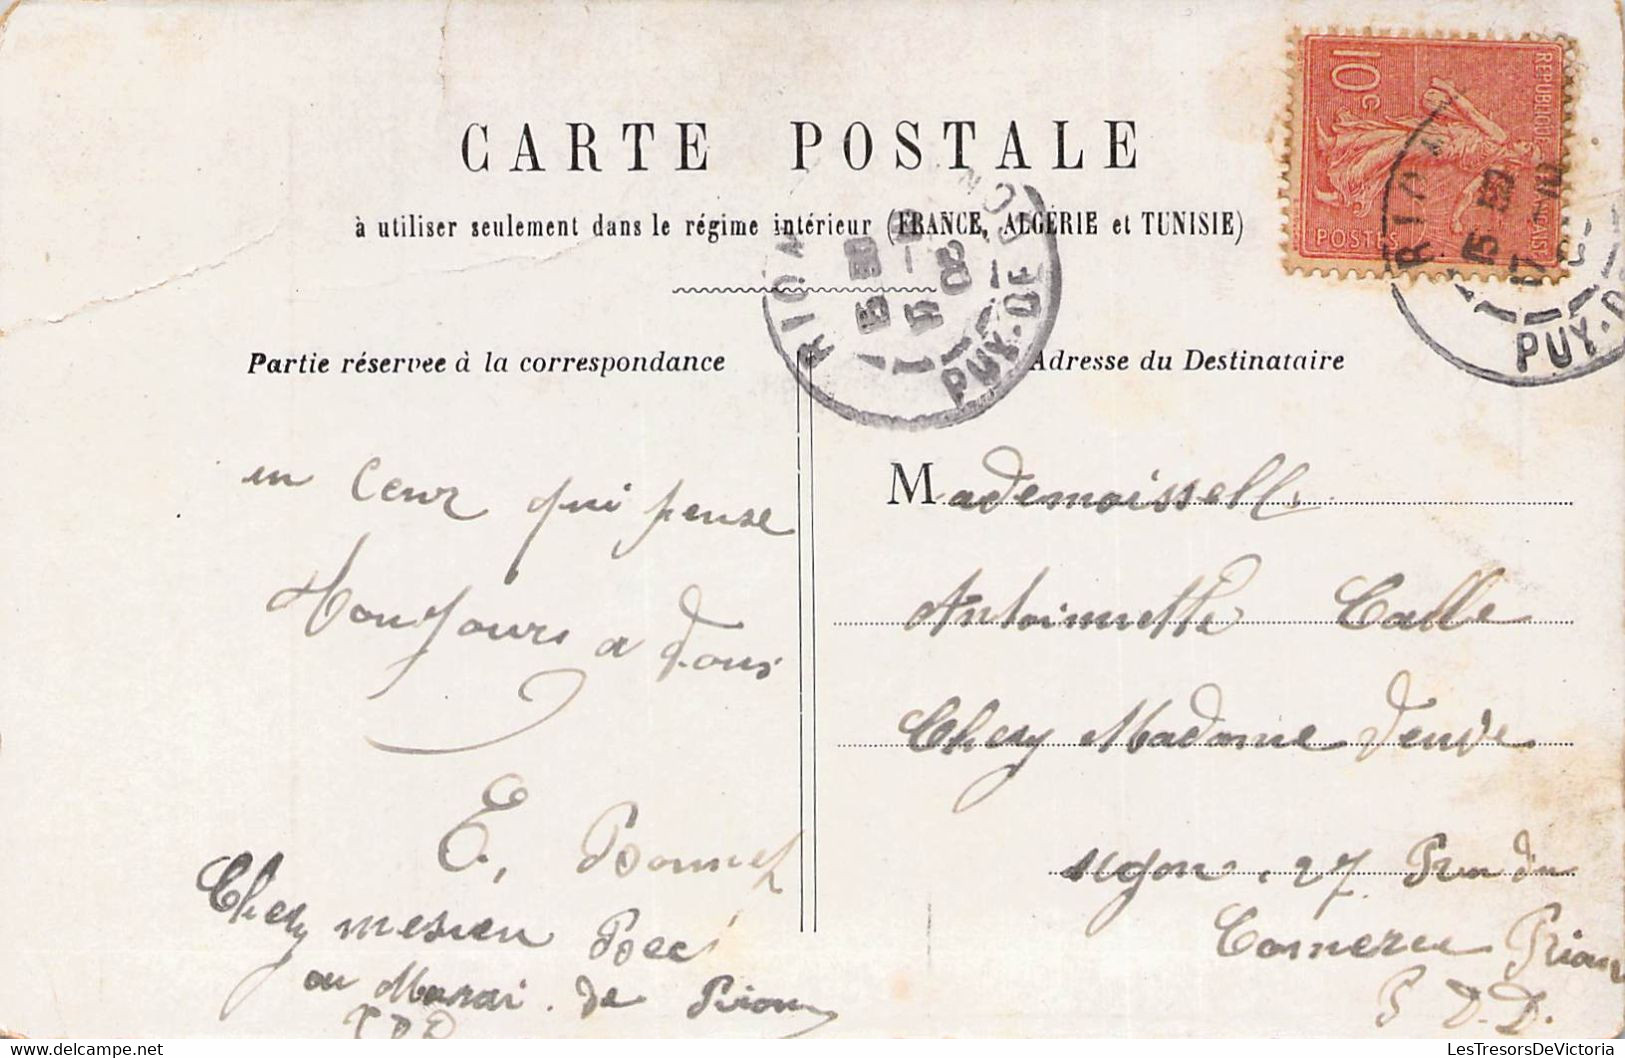 CARTE POSTALE
à utiliser seulement dans le régime intérieur (FRANCE, ALGÉRIE et TUNISIE)
10c
REPUBLIQUE FRANÇAISE
POSTES
RIOM
PUY-DE-DOM
RIOM
PUY-D
Partie réservée à la correspondance
un Ceur qui pense
Toujours a Vous
E. Bonnet
Chez mesieu Bec
au Marai de Riom
P D D
Adresse du Destinataire
Mademoisselle
Antoinnette Calle
Chez Madame Veuve
27 Rue du
Comerce Riom
P D. D.
delcampe.net
LesTresorsDeVictoria